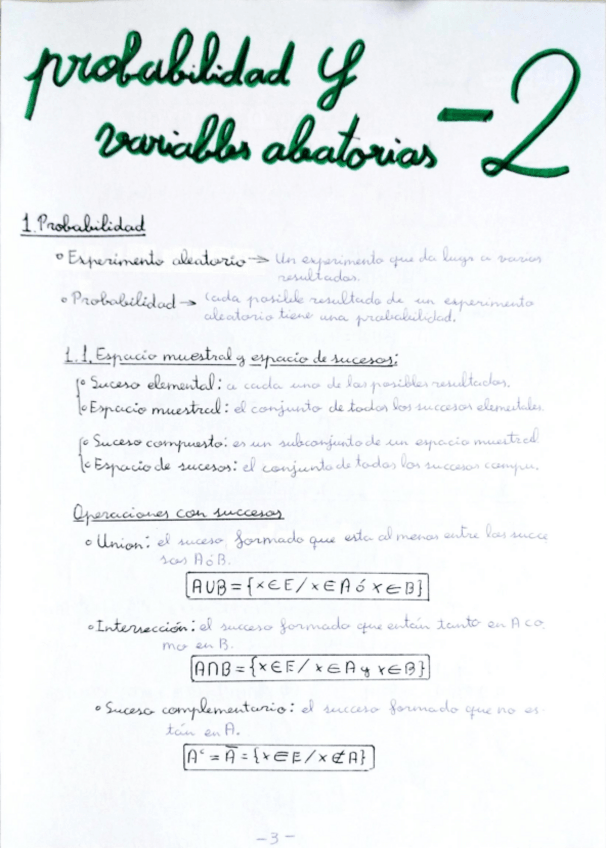 probabilidad y
variables aleatorias - 2
1. Probabilidad
° Experimento aleatorio → Un experimento que da lugar a varios
resultados.
° Probabilidad → Cada posible resultado de un experimento
aleatorio tiene una probabilidad.
1.1. Espacio muestral y espacio de sucesos:
° Suceso elemental: a cada uno de los posibles resultados.
° Espacio muestral: el conjunto de todos los sucesos elementales.
° Suceso compuesto: es un subconjunto de un espacio muestral
° Espacio de sucesos: el conjunto de todos los sucesos compu.
Operaciones con sucesos
° Union: el suceso formado que esta al menos entre los suce
sos A ó B.
A∪B = {x∈E / x∈A ó x∈B}
° Intersección: el suceso formado que están tanto en A co
mo en B.
A∩B = {x∈E / x∈A y x∈B}
° Suceso complementario: el suceso formado que no es-
tán en A.
Aᶜ = A̅ = {x∈E / x∉A}
- 3 -